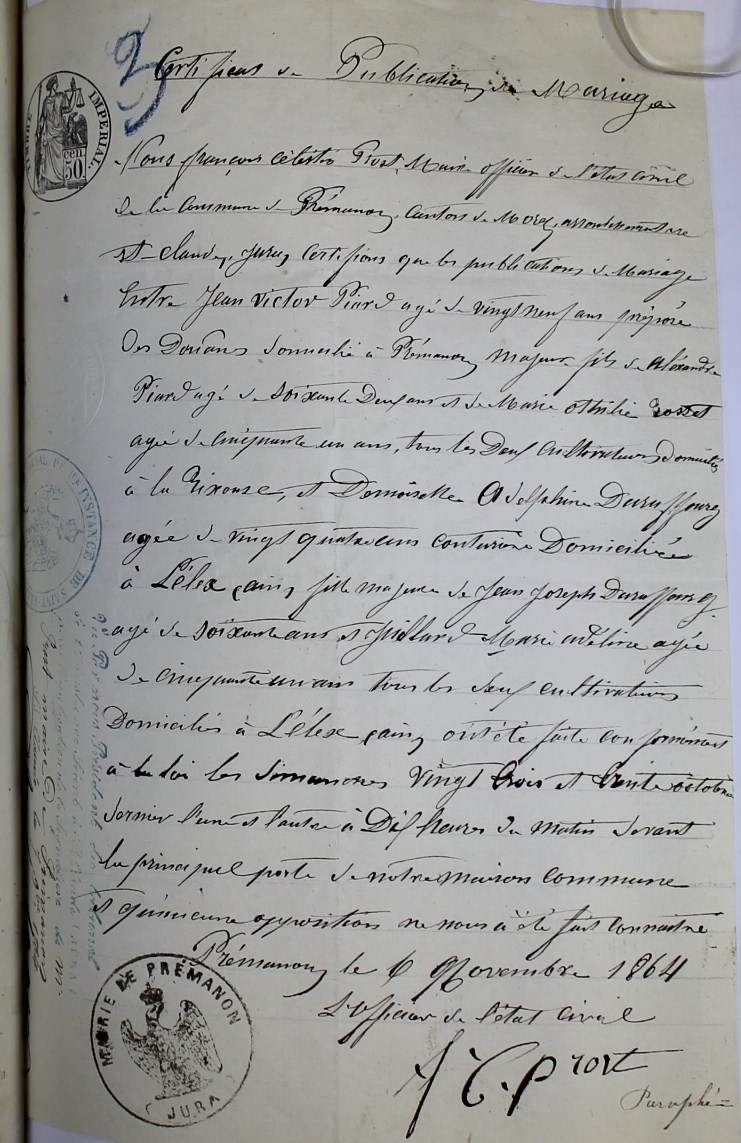 3
Certificat de Publication de Mariage
TIMBRE IMPERIAL.
cen 50
Nous françois célestin Prost, Maire officier de l'état civil
de la Commune de Prémanon, canton de Morez, arrondissement de
st-claude, Jura, Certifions que les publications de Mariage
Entre Jean Victor Piard agé de vingt neuf ans préposé
des Douanes domicilié à Prémanon majeur fils de Aléxandre
Piard agé de soixante Deux ans et de Marie othilie
agée de cinquante un ans, tous les Deux cultivateurs Domiciliés
à la Rixouse, et Demoiselle Adelphine Duraffourg
agée de vingt quatre ans couturière Domiciliée
à Lélex, ain, fille majeure de Jean Joseph Duraffourg
agé de soixante ans et Juillard Marie adéline agée
de cinquante un ans tous les deux cultivateurs
Domiciliés à Lélex, ain, ont été faite conformément
à la loi les dimanches vingt trois et trente octobre
dernier l'une et l'autre à Dix heures du matin devant
la principal porte de notre maison commune
et qu'aucune opposition ne nous à été fait connaitre
Prémanon le 6 Novembre 1864
L'officier de l'état Civil
f C. Prost
Paraphé
MAIRIE DE PRÉMANON
(JURA)